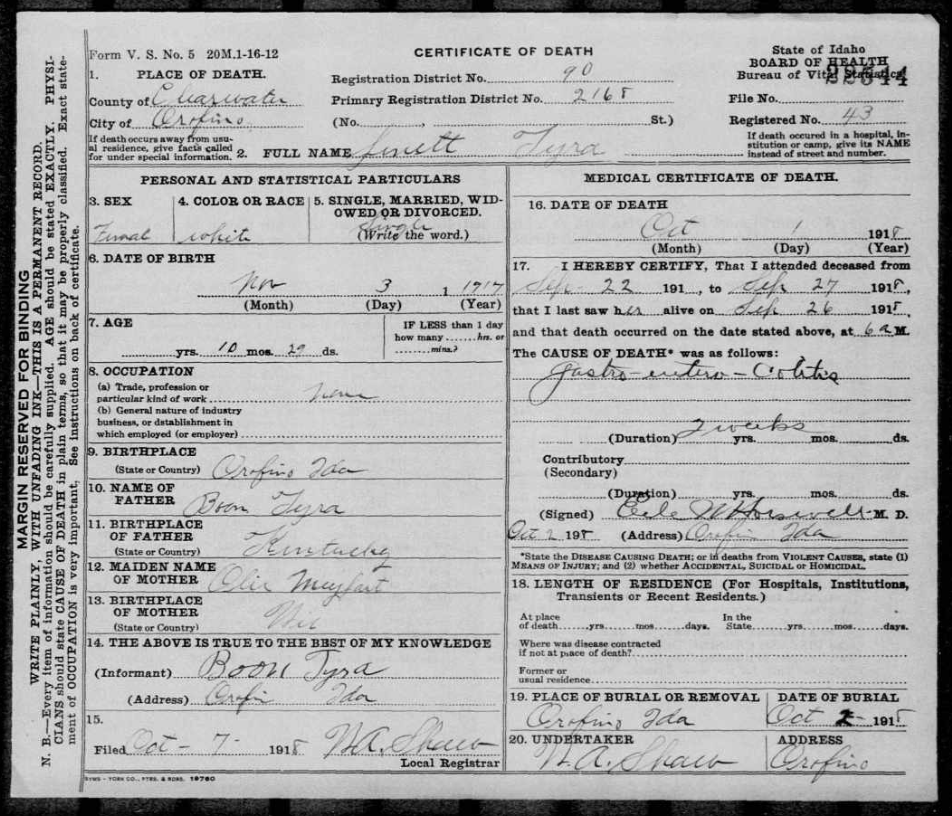 Form V. S. No. 5 20M.1-16-12
CERTIFICATE OF DEATH
State of Idaho
BOARD OF HEALTH
Bureau of Vital Statistics
1. PLACE OF DEATH.
County of Clearwater
City of Orofino
If death occurs away from usual residence, give facts called for under special information.
Registration District No. 90
Primary Registration District No. 2168
(No. , St.)
File No.
Registered No. 43
If death occured in a hospital, institution or camp, give its NAME instead of street and number.
2. FULL NAME Tyra
PERSONAL AND STATISTICAL PARTICULARS
3. SEX
Femal
4. COLOR OR RACE
white
5. SINGLE, MARRIED, WIDOWED OR DIVORCED.
Single
(Write the word.)
6. DATE OF BIRTH
Nov 3 1 1917
(Month) (Day) (Year)
7. AGE
yrs. 10 mos. 29 ds.
IF LESS than 1 day
how many hrs. or
mins.?
8. OCCUPATION
(a) Trade, profession or
particular kind of work
(b) General nature of industry
business, or dstablishment in
which employed (or employer)
9. BIRTHPLACE
(State or Country) Orofino Ida
10. NAME OF
FATHER Boon Tyra
11. BIRTHPLACE
OF FATHER
(State or Country) Kentucky
12. MAIDEN NAME
OF MOTHER
13. BIRTHPLACE
OF MOTHER
(State or Country)
14. THE ABOVE IS TRUE TO THE BEST OF MY KNOWLEDGE
(Informant) Boon Tyra
(Address) Orofin Ida
15.
Filed Oct - 7 - 1918 W.A. Shaw
Local Registrar
SYMS - YORK CO., PTRS. & BDRS. 19760
MEDICAL CERTIFICATE OF DEATH.
16. DATE OF DEATH
Oct 1 1918
(Month) (Day) (Year)
17. I HEREBY CERTIFY, That I attended deceased from
Sep - 22 191 , to Sep 27 1918,
that I last saw her alive on Sep 26 1918,
and that death occurred on the date stated above, at 6 a M.
The CAUSE OF DEATH* was as follows:
Gastro-entero-Colitis
(Duration) 2 weeks yrs. mos. ds.
Contributory
(Secondary)
(Duration) yrs. mos. ds.
(Signed) M. D.
Oct 2 1918 (Address) Orofin Ida
*State the DISEASE CAUSING DEATH; or in deaths from VIOLENT CAUSES, state (1)
MEANS OF INJURY; and (2) whether ACCIDENTAL, SUICIDAL OR HOMICIDAL.
18. LENGTH OF RESIDENCE (For Hospitals, Institutions,
Transients or Recent Residents.)
At place of death yrs. mos. days. In the State yrs. mos. days.
Where was disease contracted
if not at place of death?
Former or
usual residence
19. PLACE OF BURIAL OR REMOVAL
Orofino Ida
DATE OF BURIAL
Oct 2 - 1918
20. UNDERTAKER
W. A. Shaw
ADDRESS
Orofino
MARGIN RESERVED FOR BINDING
WRITE PLAINLY, WITH UNFADING INK—THIS IS A PERMANENT RECORD.
N. B.—Every item of information should be carefully supplied. AGE should be stated EXACTLY. PHYSI-
CIANS should state CAUSE OF DEATH in plain terms, so that it may be properly classified. Exact state-
ment of OCCUPATION is very important. See instructions on back of certificate.